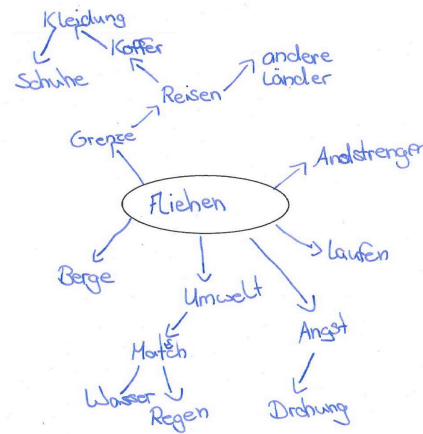 Kleidung
Koffer
Schuhe
andere
Länder
Reisen
Grenze
Fliehen
Laufen
Berge
Umwelt
Angst
Matsch
Wasser
Regen
Drohung